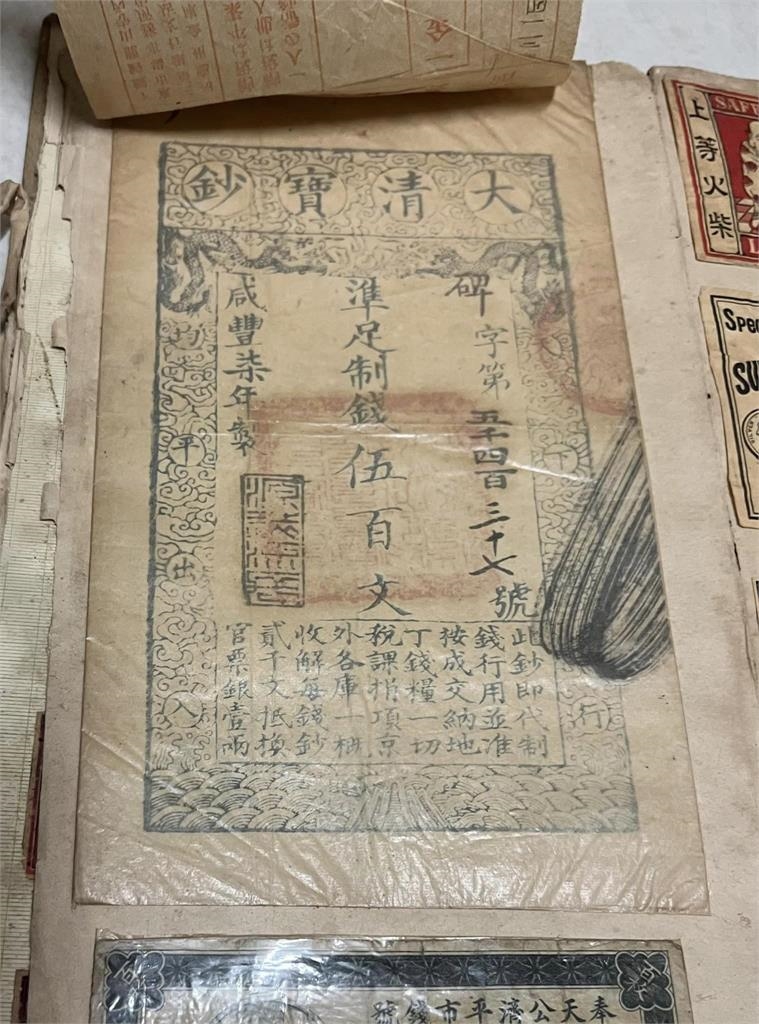 大清寶鈔
碑字第五千四百三十七號
準足制錢伍百文
咸豐柒年製
下
行
均平出入
此鈔即代制
錢行用並准
按成交納地
丁錢糧一切
稅課捐項京
外各庫一概
收解每錢鈔
貳千文抵換
官票銀壹兩
上等火柴
SAFE
Spe
SU
奉天公濟平市錢號